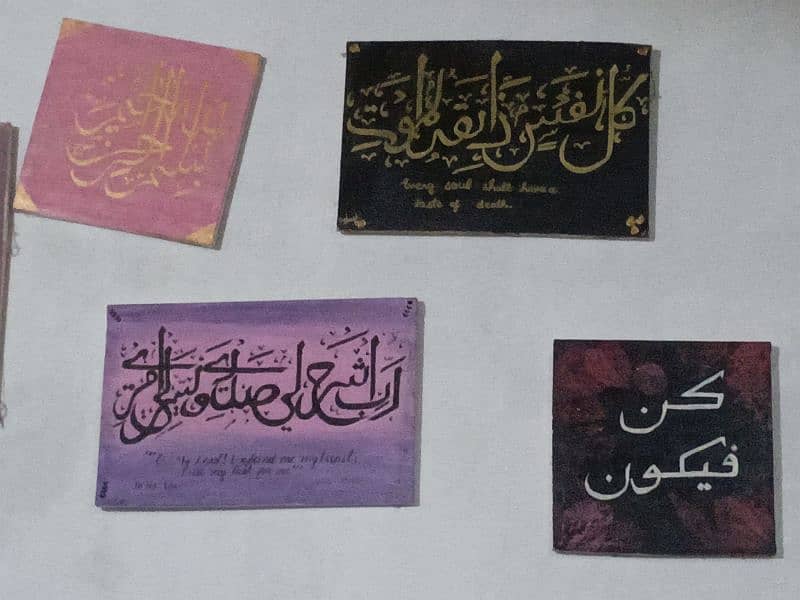 بسم الله الرحمن الرحيم
كل نفس ذائقة الموت
Every soul shall have a
taste of death.
رب اشرح لي صدري ويسر لي امري
my heart
for me
كن
فيكون